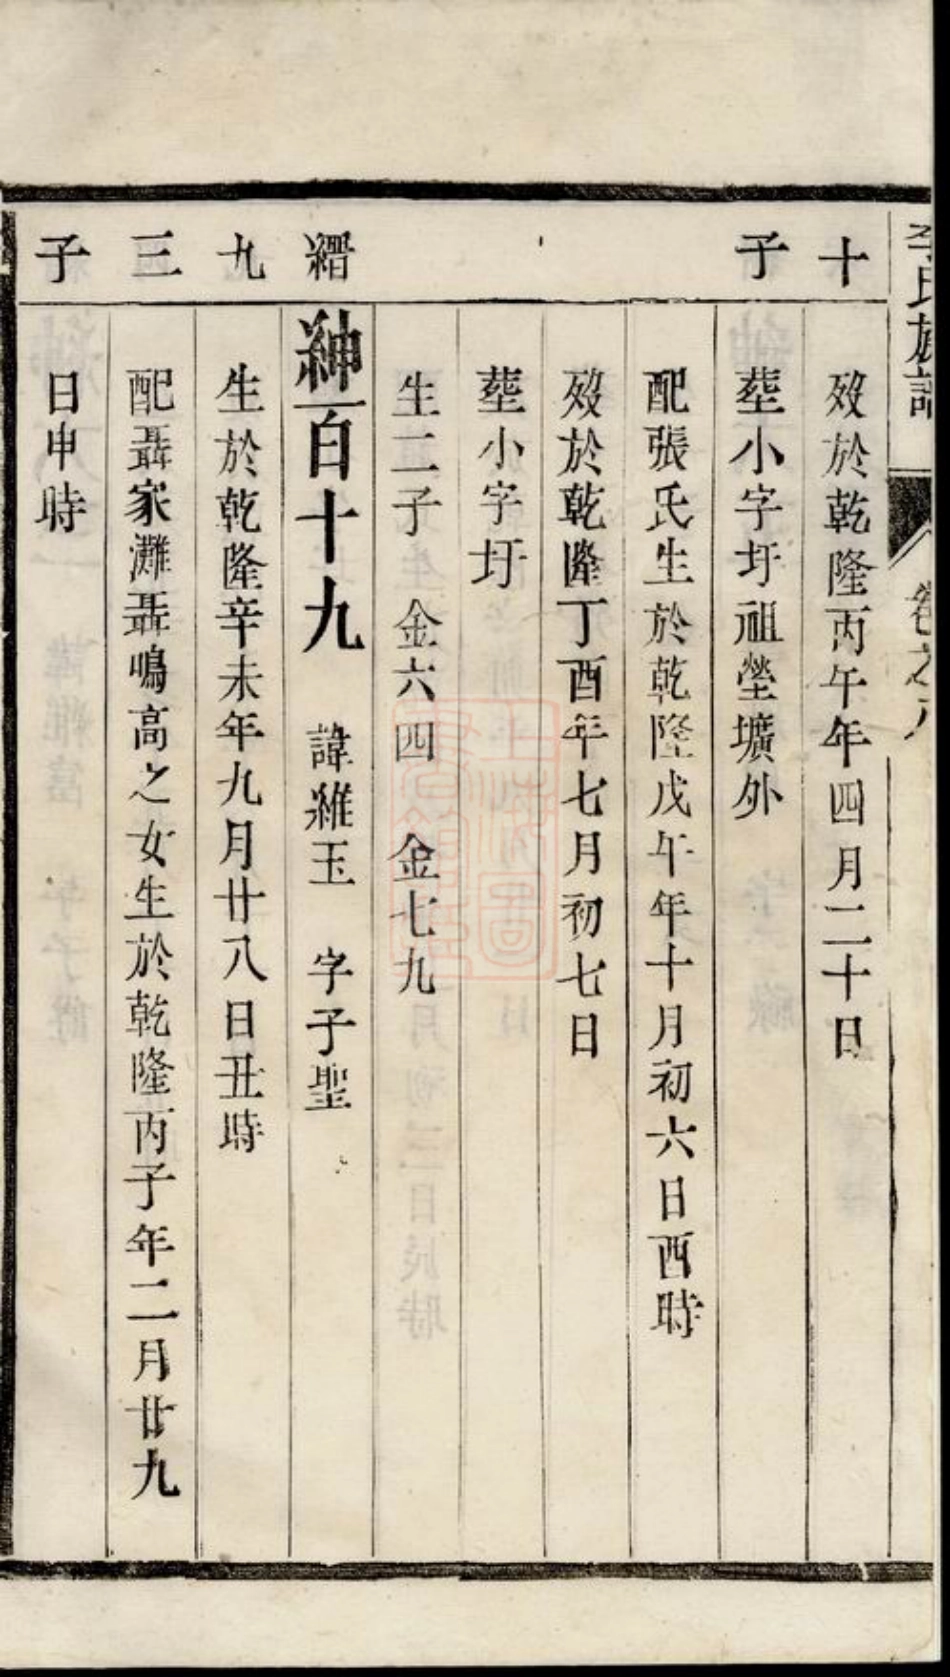 李氏族譜
卷之六
十
歿於乾隆丙午年四月二十日
子
葬小字圩祖塋壙外
配張氏生於乾隆戊午年十月初六日酉時
歿於乾隆丁酉年七月初七日
葬小字圩
生二子 金六四 金七九
縉
紳百十九 諱維玉 字子聖
九
生於乾隆辛未年九月廿八日丑時
三
配聶家灘聶鳴高之女生於乾隆丙子年二月廿九
子
日申時